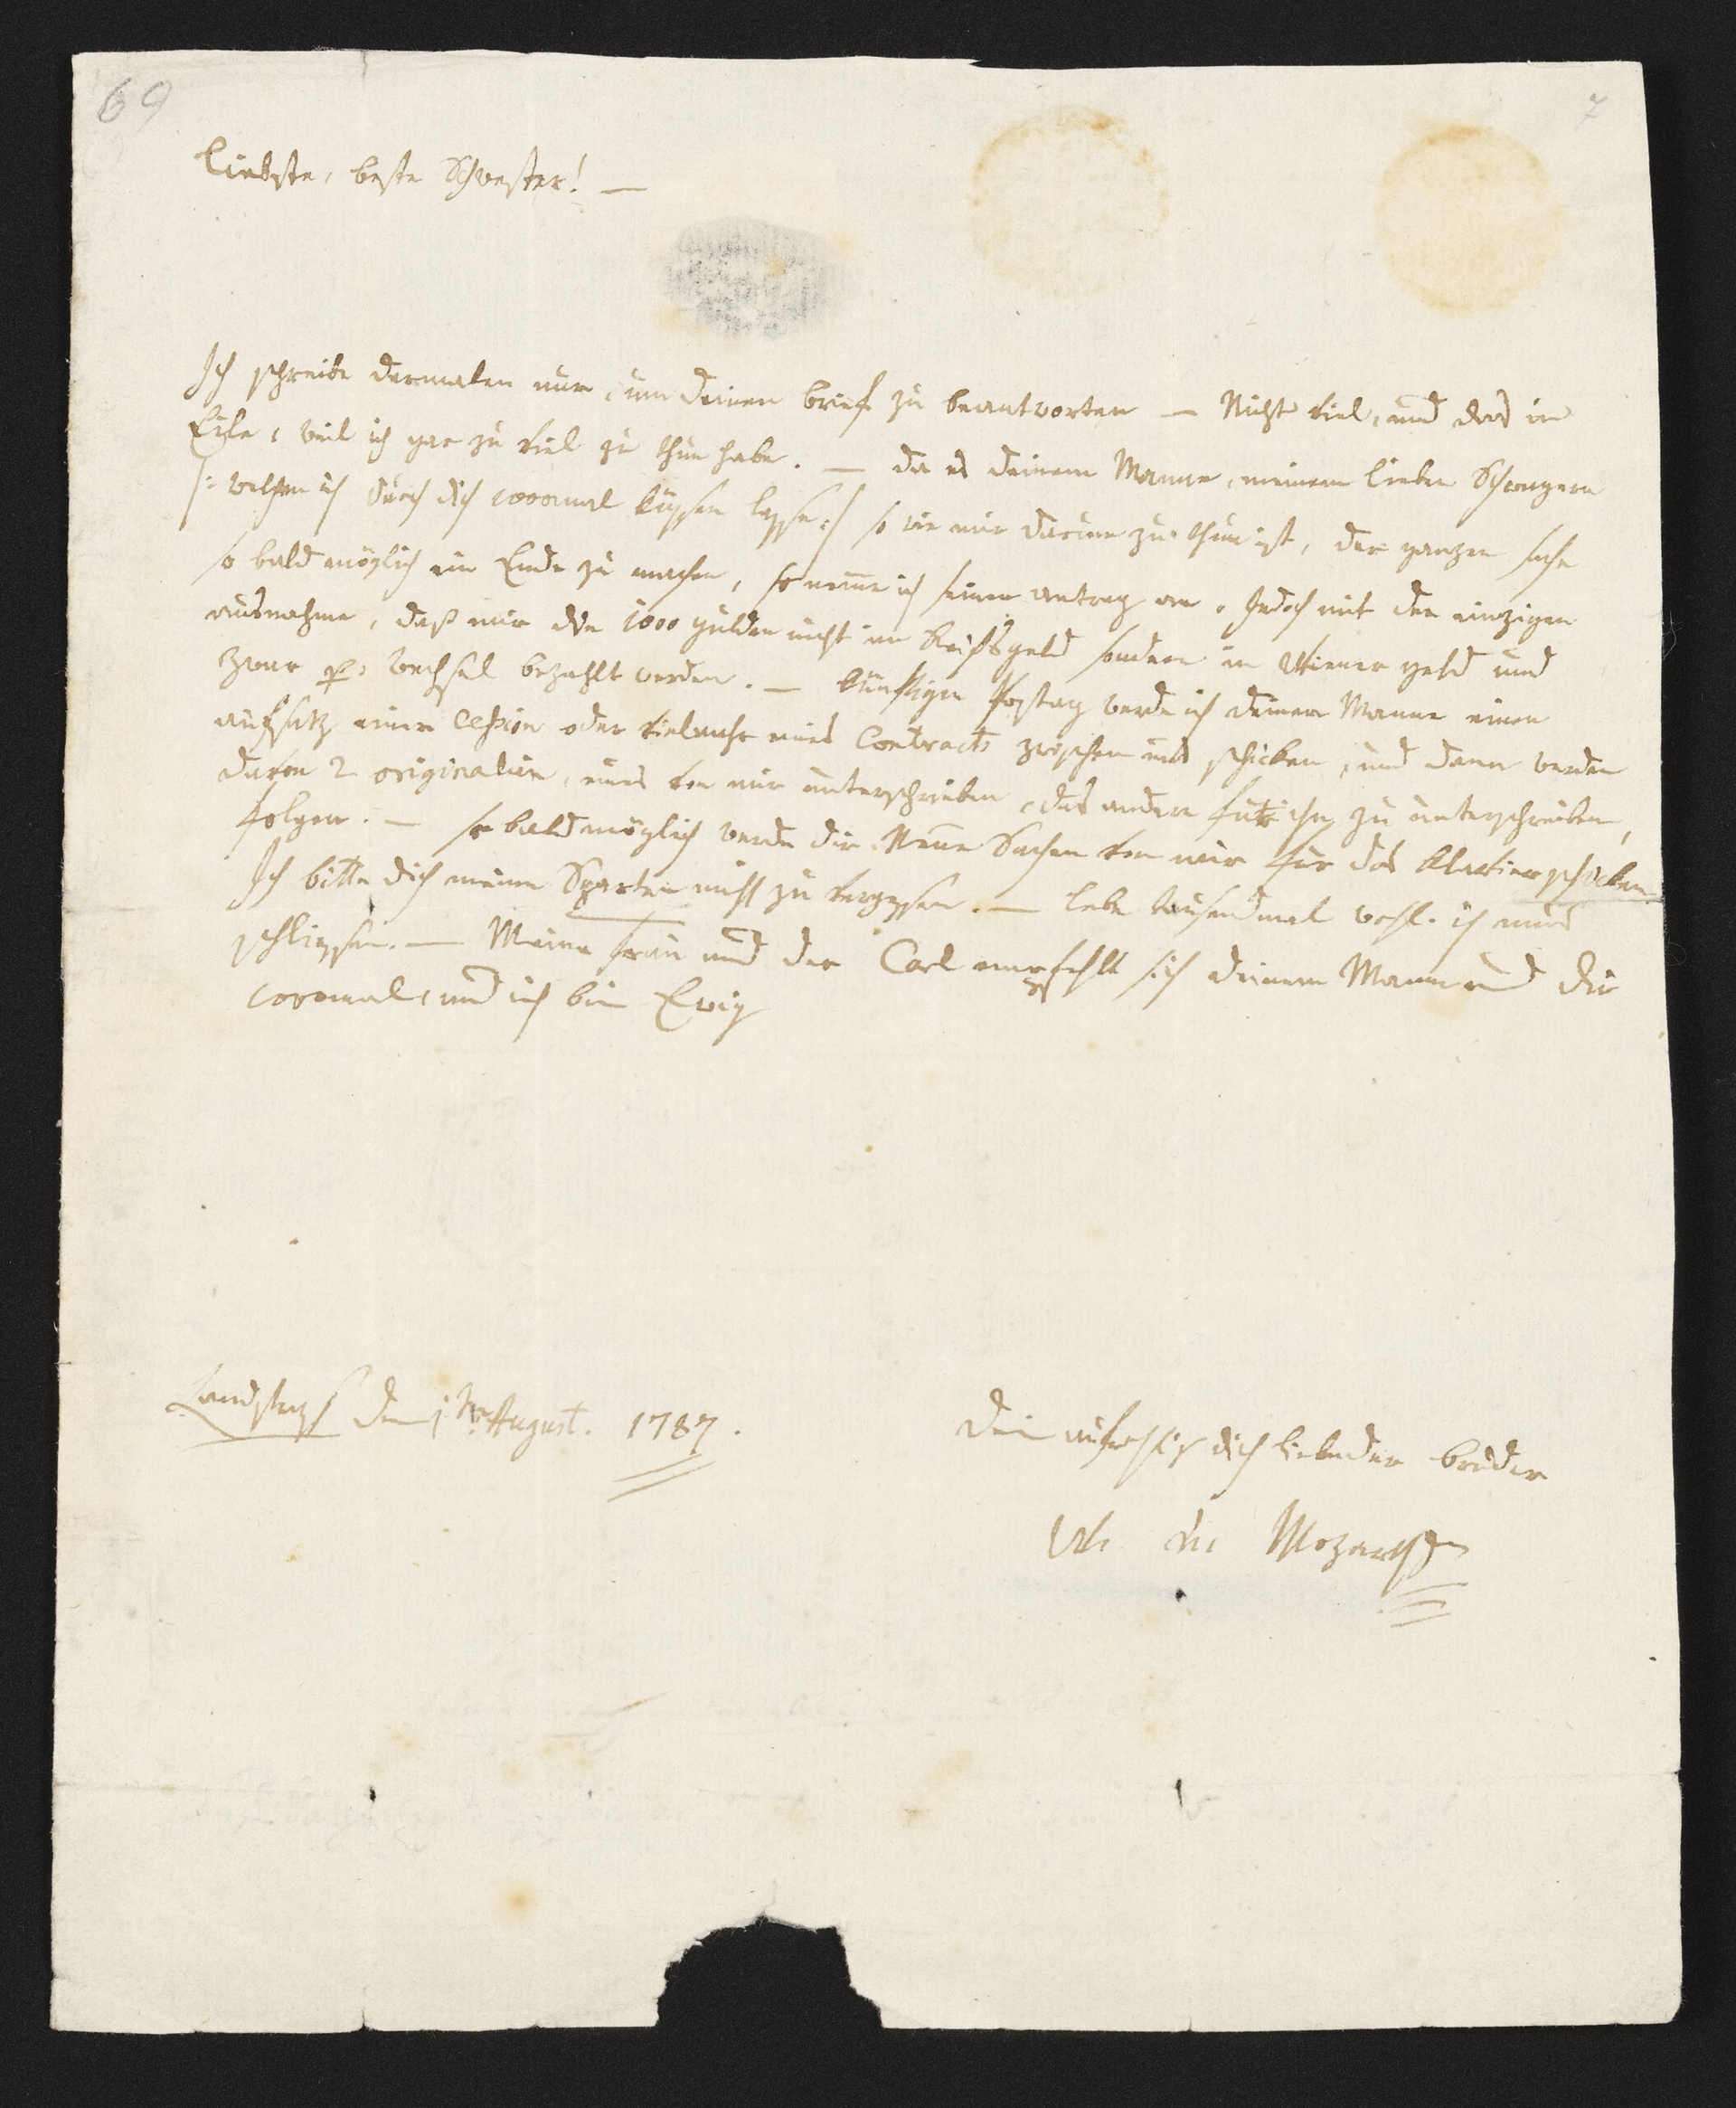 69
7
Liebste, beste Schwester! —
Ich schreibe dermalen nur, um deinen brief zu beantworten — Nicht viel, und das in
Eile, weil ich gar zu viel zu thun habe. — da es deinem Manne, meinem lieben Schwagern
/: welchen ich durch dich 1000mal küssen lasse :/ so wie mir darum zu thun ist, der ganzen sache
so bald möglich ein Ende zu machen, so nem̅e ich seinen antrag an. Jedoch mit der einzigen
ausnahme, daß mir die 1000 gulden nicht in Reichsgeld sondern in Wiener geld und
zwar per Wechsel bezahlt werden. — künftigen Posttag werde ich deinem Manne einen
aufsatz einer Cession oder vielmehr eines Contracts zwischen uns schicken, und dann werden
davon 2 originalien, eines von mir unterschrieben, das andere für ihn zu unterschreiben,
folgen. — so bald möglich werde dir Neue Sachen von mir für das klavier schicken
Ich bitte dich meine Sparten nicht zu vergessen. — lebe tausendmal wohl. ich muß
schliessen. — Meine frau und der Carl empfehlt sich deinem Mann und dir
1000mal, und ich bin Ewig
Landstrasse den 1:t August. 1787.
Dein aufrichtig dich liebender bruder
W: A: Mozart